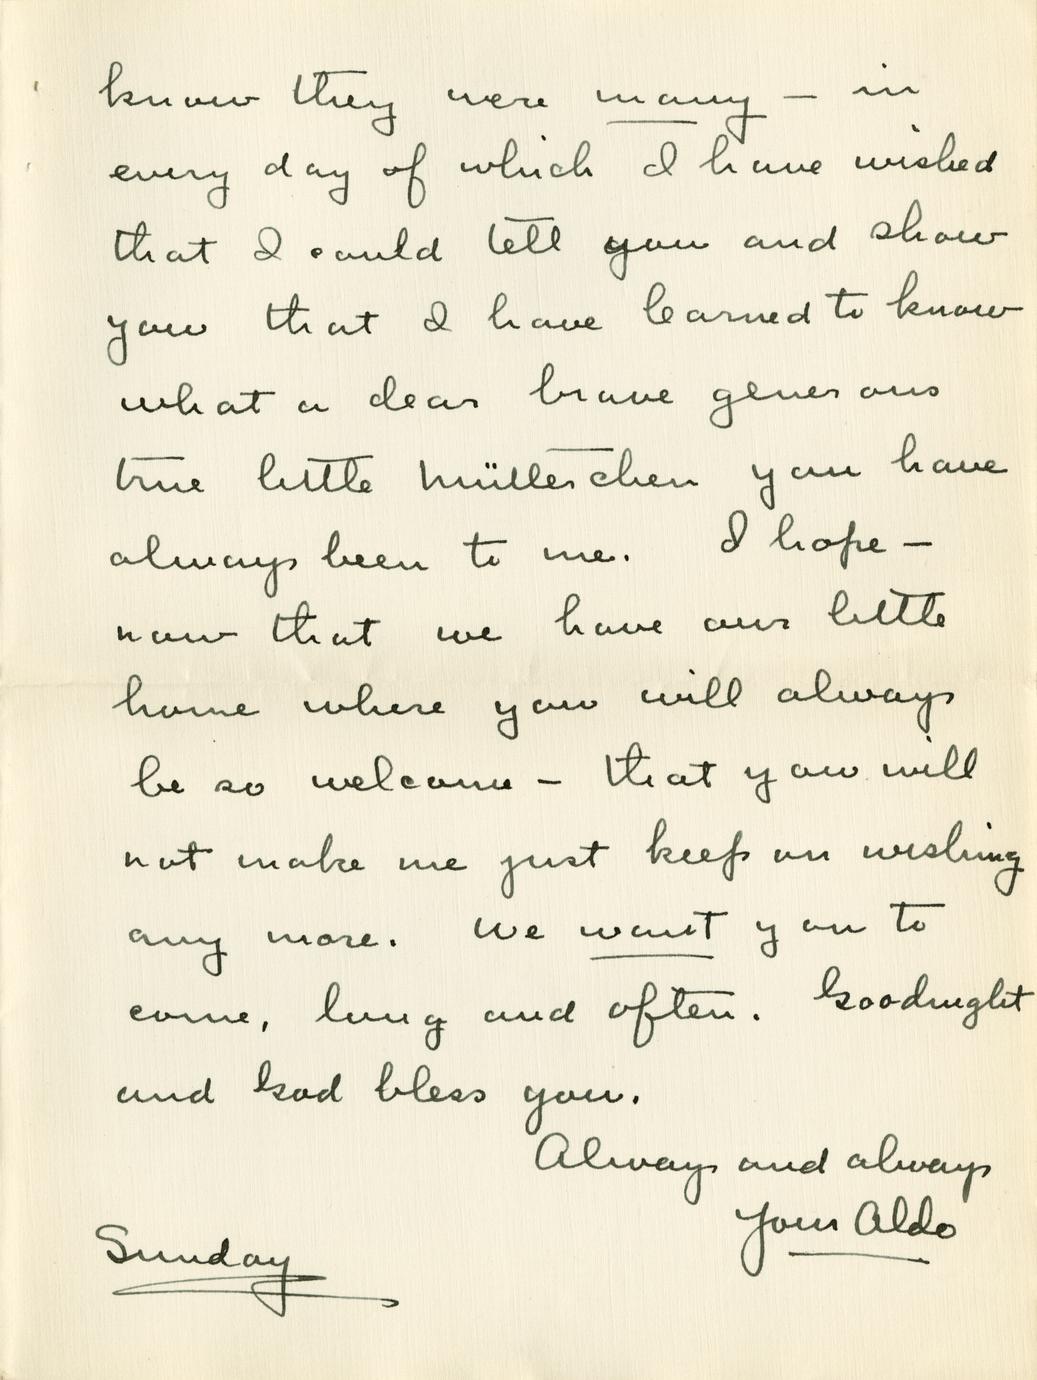 know they were many — in
every day of which I have wished
that I could tell you and show
you that I have learned to know
what a dear brave generous
true little Mütterchen you have
always been to me. I hope —
now that we have our little
home where you will always
be so welcome — that you will
not make me just keep on wishing
any more. We want you to
come, long and often. Goodnight
and God bless you.
Always and always
Your Aldo
Sunday